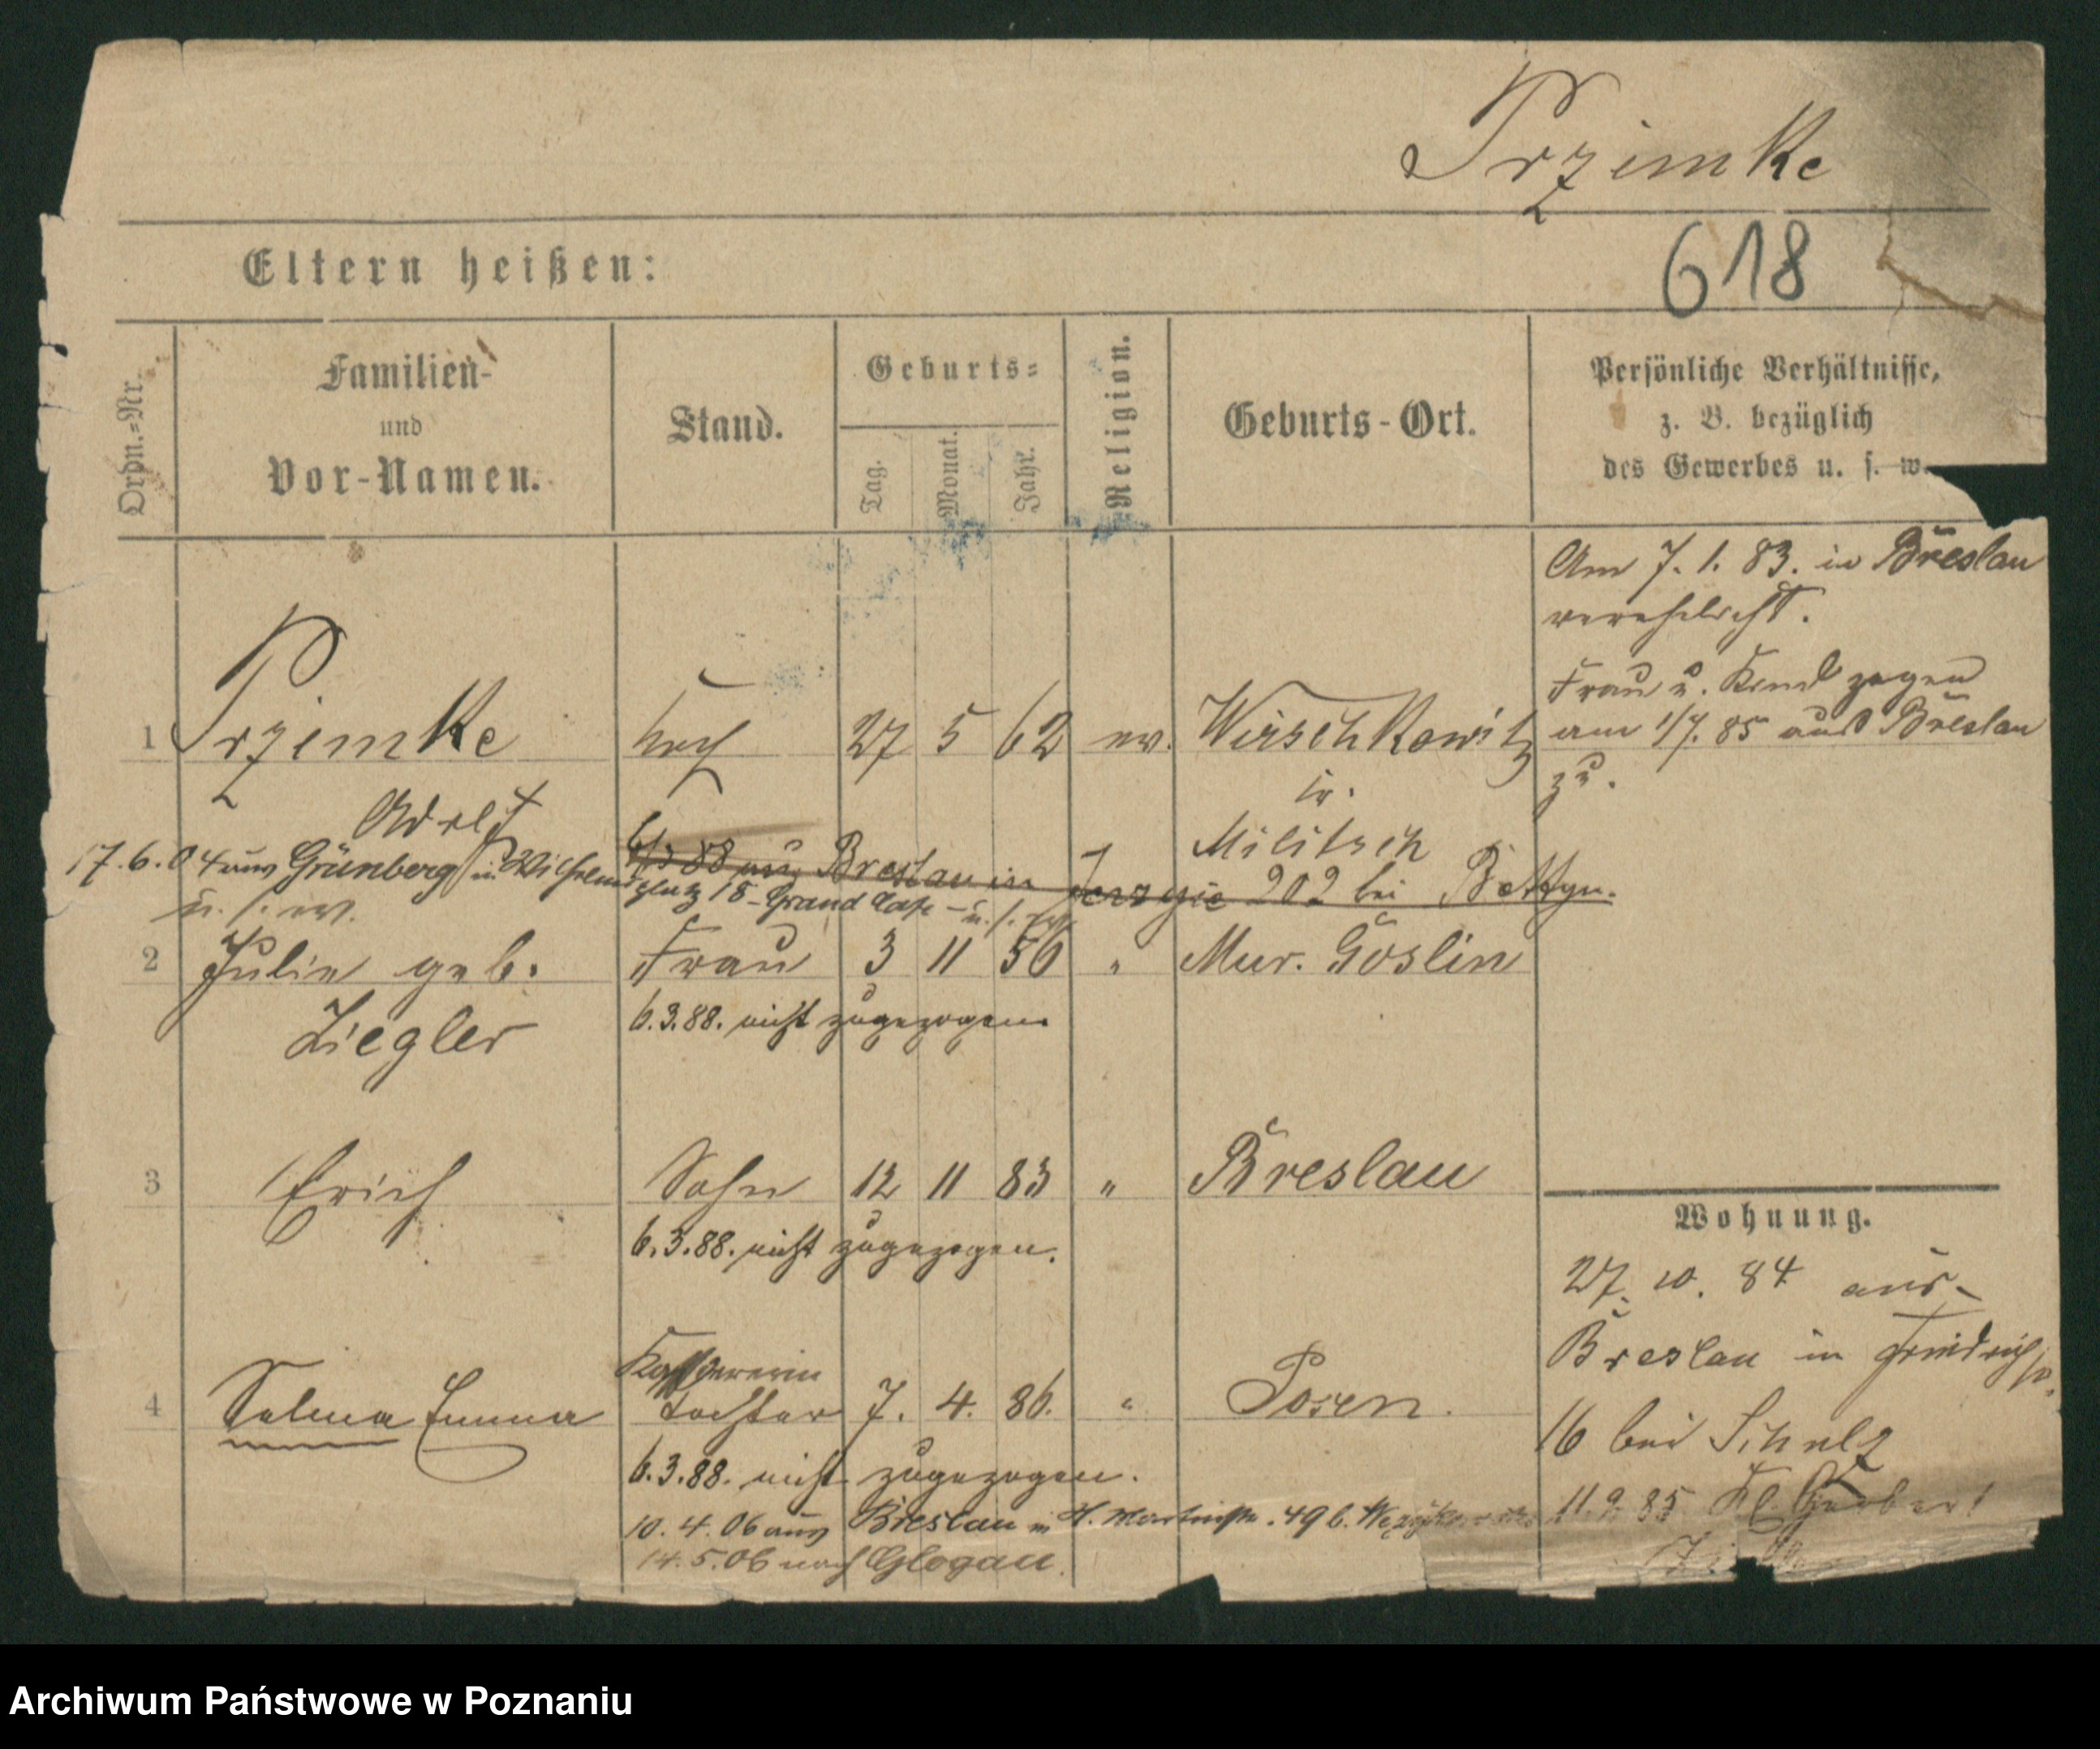 Przimke
618
Eltern heißen:
Ordn.-Nr.
Familien-
und
Vor-Namen.
Stand.
Geburts-
Tag.
Monat.
Jahr.
Religion.
Geburts-Ort.
Persönliche Verhältnisse,
z. B. bezüglich
des Gewerbes u. s. w.
Am 7. 1. 83. in Breslau
verehelicht.
Frau u. Kind zogen
am 1/7. 85 aus Breslau
zu.
1 Przimke Koch 27 5 62 ev. Wirschkowitz
Kr.
Adolf Militsch
6/3 88 aus Breslau in Jerzyce 202 bei
17.6.04 aus Grünberg in Wilhelmsplatz 18 - Grand Café -
2 Julie geb. Frau 3 11 56 " Mur. Goslin
Ziegler 6.3.88. nicht zugezogen
3 Erich Sohn 12 11 83 " Breslau
6.3.88. nicht zugezogen.
Wohnung.
27. 10. 84 aus
Breslau in Friedrichstr.
16 bei Schulz
11.9 85 Kl. Gerberst
Kassiererin
4 Selma Emma Tochter 7. 4. 86. " Posen.
6.3.88. nicht zugezogen.
10. 4. 06 aus Breslau in St. Martinstr. 49 b.
14. 5. 06 nach Glogau.
Archiwum Państwowe w Poznaniu